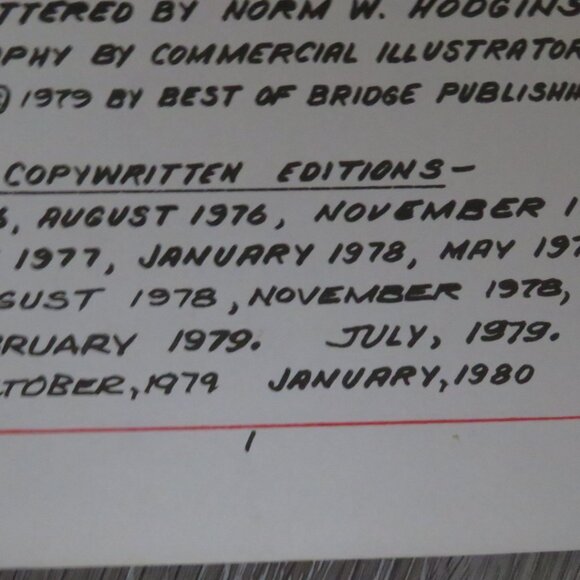 TTERED BY NORM W. HODGINS
PHY BY COMMERCIAL ILLUSTRATOR
© 1979 BY BEST OF BRIDGE PUBLISHI
COPYWRITTEN EDITIONS-
6, AUGUST 1976, NOVEMBER 1
1977, JANUARY 1978, MAY 197
GUST 1978, NOVEMBER 1978,
RUARY 1979. JULY, 1979.
TOBER, 1979 JANUARY, 1980
1